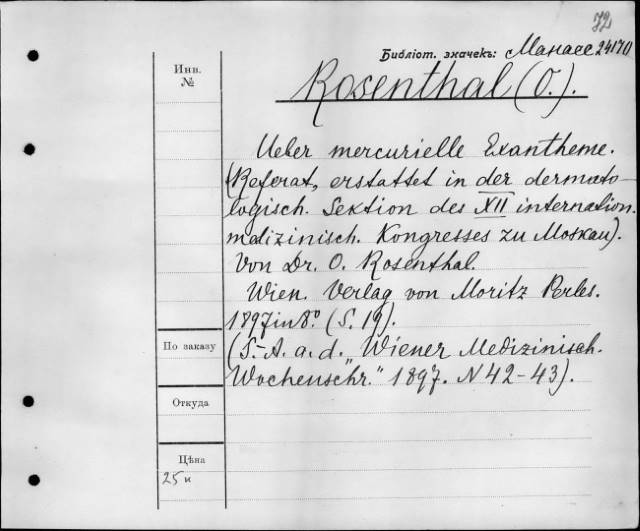 72
Библіот. значекъ: Манасе 24170
Инв.
№
Rosenthal (O.).
Ueber mercurielle Exantheme.
(Referat, erstattet in der dermato-
logisch. Sektion des XII internation.
medizinisch. Kongresses zu Moskau).
Von Dr. O. Rosenthal.
Wien. Verlag von Moritz Perles.
1897 in 8.° (S. 19).
По заказу
(S.-A. a. d. „Wiener Medizinisch.
Wochenschr.“ 1897. N 42-43).
Откуда
Цѣна
25 к